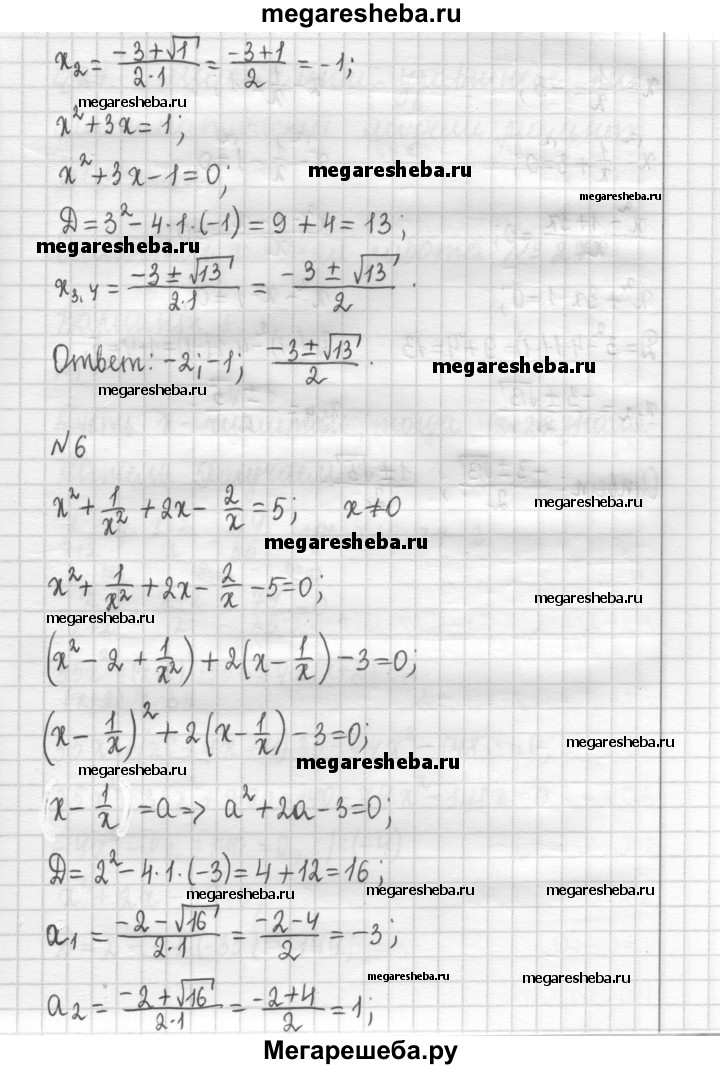 megaresheba.ru
x₂ = (-3+√1)/(2·1) = (-3+1)/2 = -1;
megaresheba.ru
x²+3x=1;
x²+3x-1=0;
megaresheba.ru
megaresheba.ru
Д=3²-4·1·(-1)=9+4=13;
megaresheba.ru
x₃,₄ = (-3±√13)/(2·1) = (-3±√13)/2.
Ответ: -2; -1; (-3±√13)/2.
megaresheba.ru
megaresheba.ru
N6
x²+1/x²+2x-2/x=5; x≠0
megaresheba.ru
megaresheba.ru
x²+1/x²+2x-2/x-5=0;
megaresheba.ru
megaresheba.ru
(x²-2+1/x²)+2(x-1/x)-3=0;
(x-1/x)²+2(x-1/x)-3=0;
megaresheba.ru
megaresheba.ru
megaresheba.ru
x-1/x=a=> a²+2a-3=0;
Д=2²-4·1·(-3)=4+12=16;
megaresheba.ru
megaresheba.ru
megaresheba.ru
a₁ = (-2-√16)/(2·1) = (-2-4)/2 = -3;
megaresheba.ru
megaresheba.ru
a₂ = (-2+√16)/(2·1) = (-2+4)/2 = 1;
Мегарешеба.ру